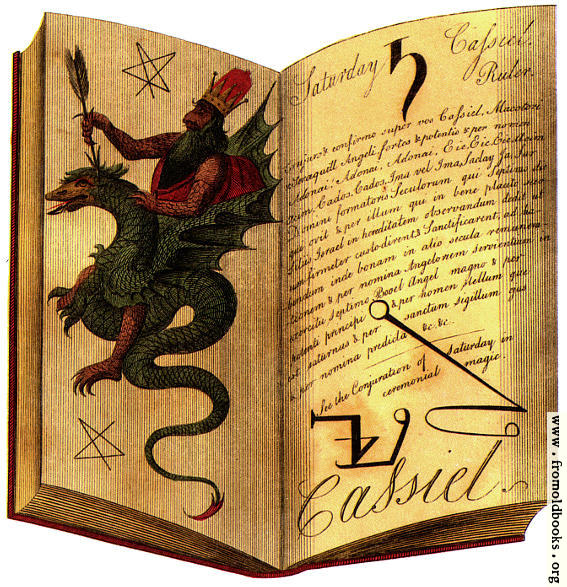 Saturday ♄ Cassiel.
Ruler.
Conjuro & confirmo super vos Cassiel, Macatori
Seraquill Angeli fortes & potentis & per nomen
Adonai! Adonai. Adonai. Eie. Eie. Eie.
Cados. Cados. Ima vel Ima. Saday Ja. Sar
Domini formatoris Seculorum qui Septimo die
qui ovit & per illum qui in bene placito suo
filiis Israel in hereditatem observandum dedit ut
eum firmeter custodirent & Sanctificarent, ad
habendum inde bonam in alio secula remunera
tionem & per nomina Angelorem servientium in
exercitu Septimo Booel Angel magno & per
potenti principi & per nomen stellum que
est saturnus & per sanctum sigillum
& per nomina predicta &c. &c.
See the Conjuration of Saturday in
ceremonial magic.
Cassiel
www.fromoldbooks.org